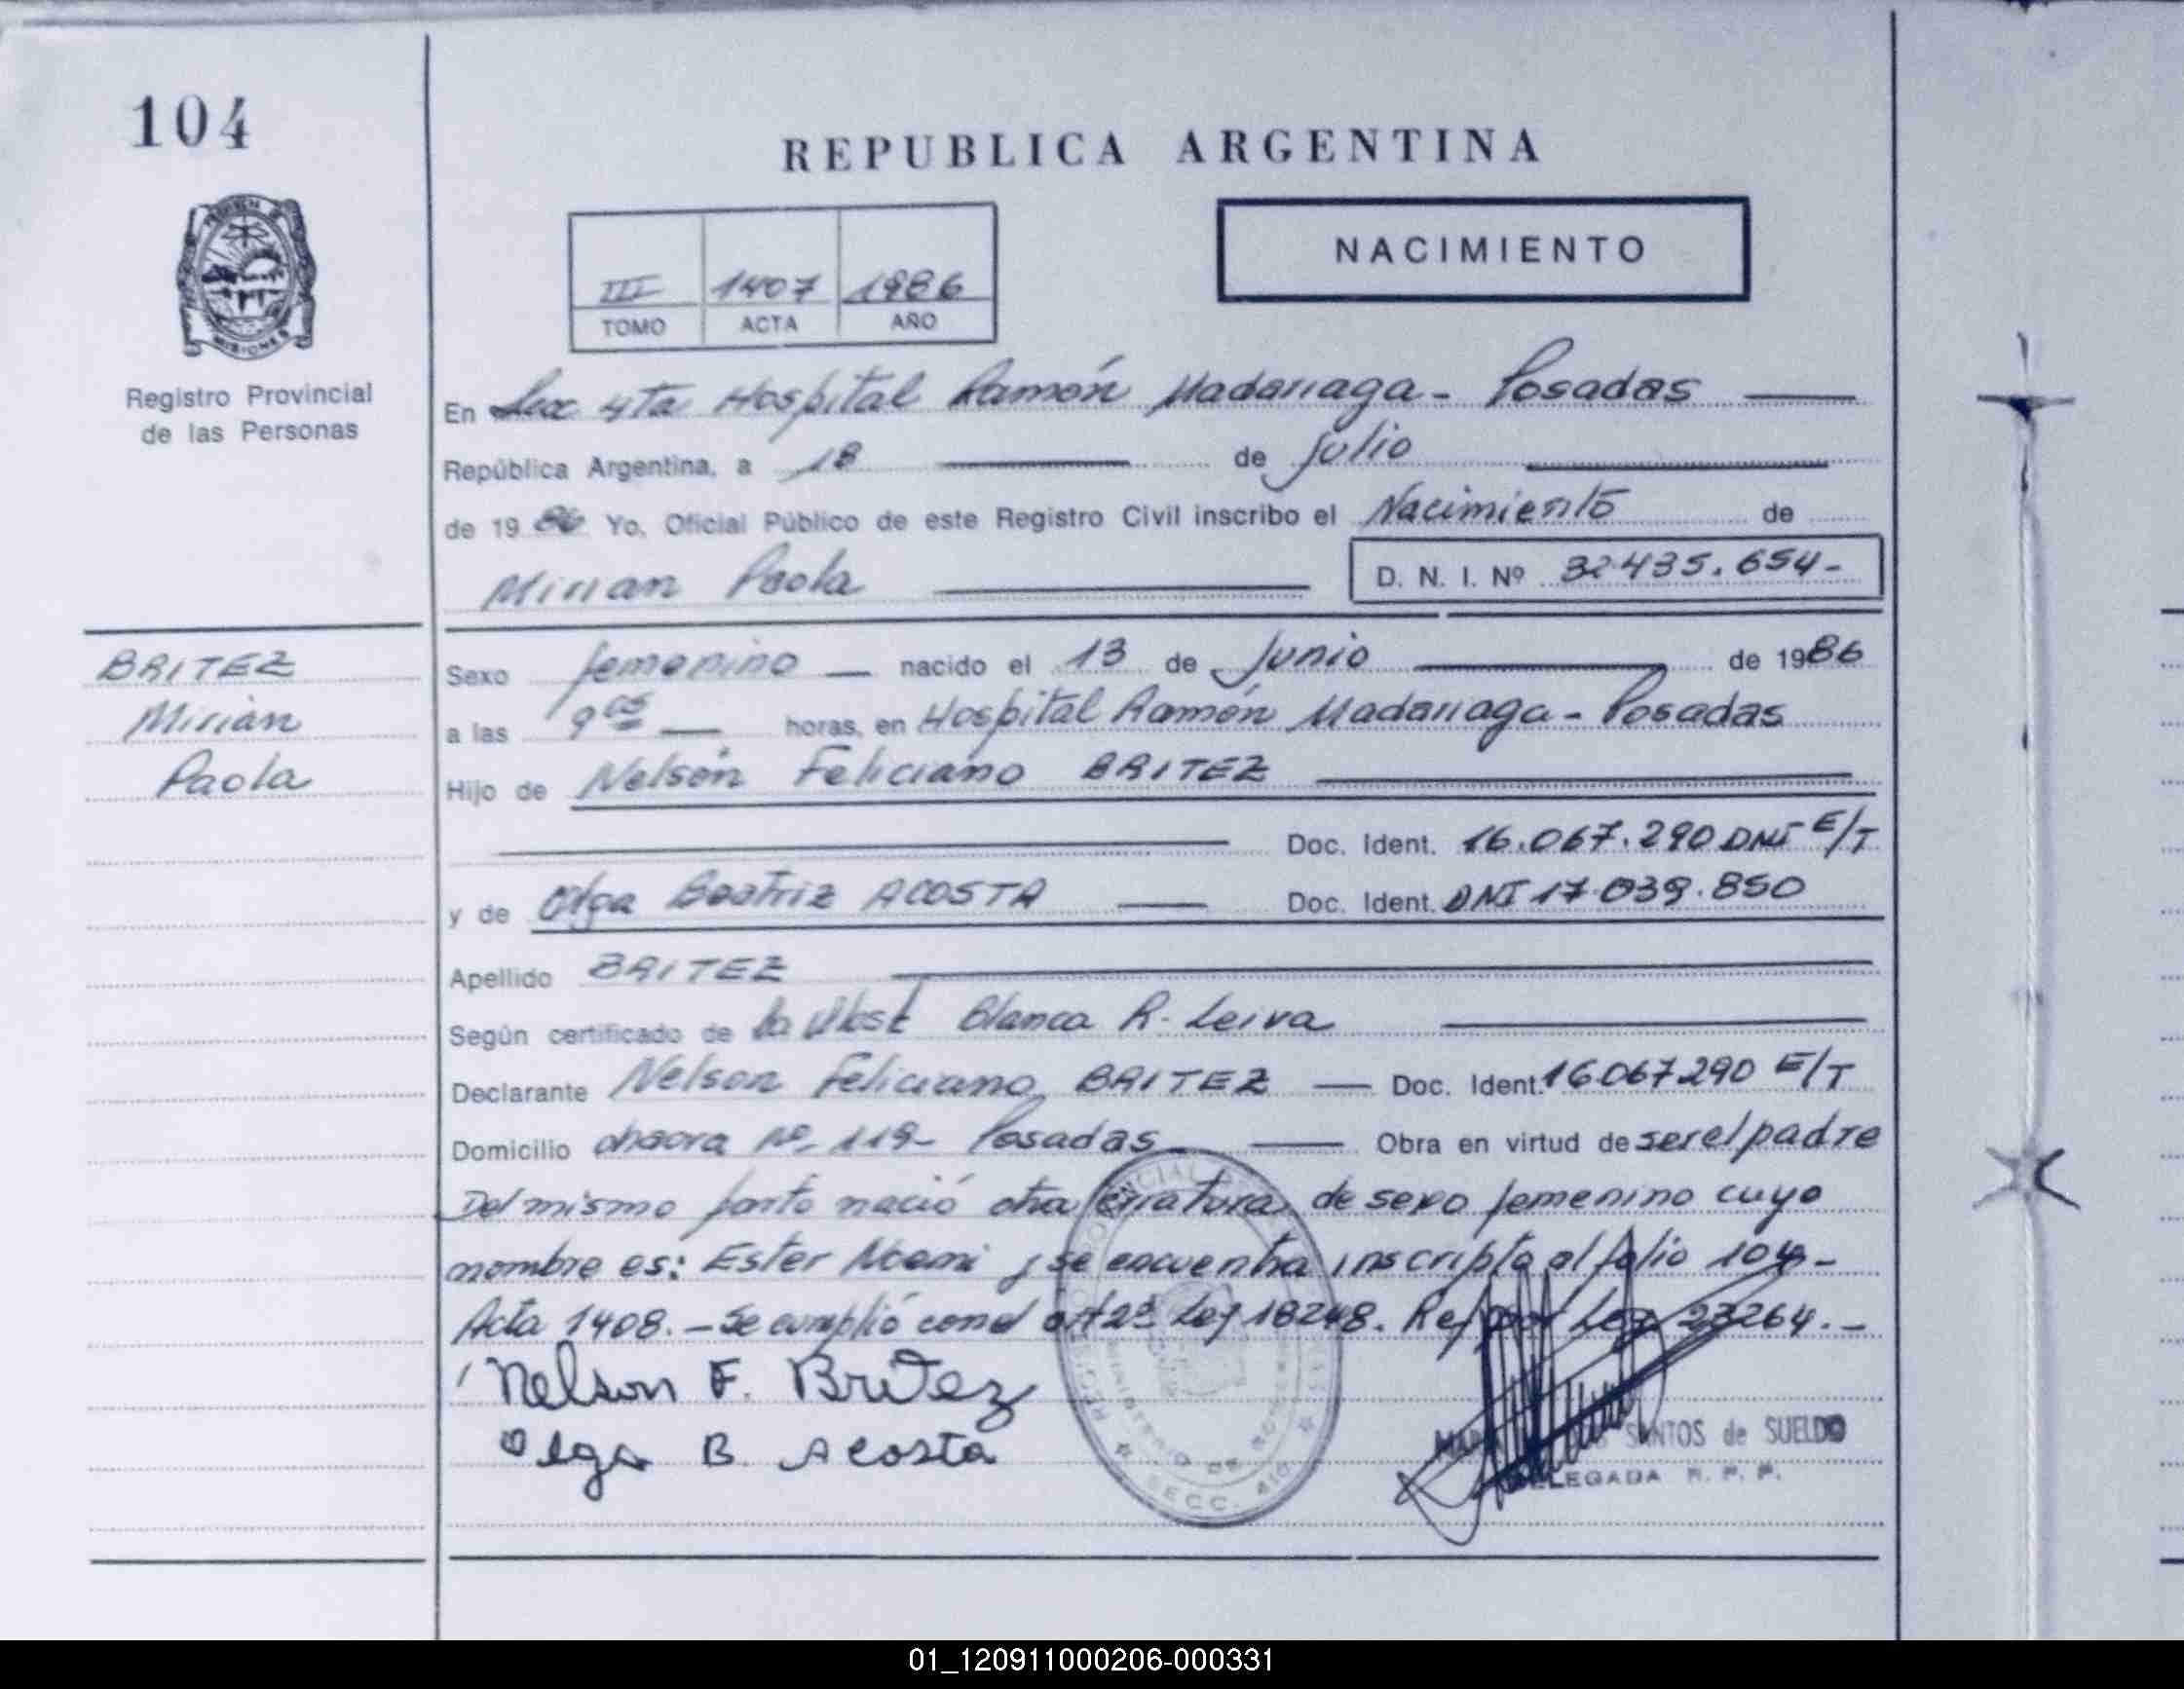 104
REPUBLICA ARGENTINA
NACIMIENTO
III 1407 1986
TOMO ACTA AÑO
Registro Provincial
de las Personas
En Sec 4ta Hospital Ramón Madariaga - Posadas
República Argentina, a 18 de Julio
de 1986 Yo, Oficial Público de este Registro Civil inscribo el Nacimiento de
Mirian Paola D. N. I. Nº 32.435.654-
BRITEZ
Mirian
Paola
Sexo femenino nacido el 13 de Junio de 1986
a las 9 05 horas, en Hospital Ramón Madariaga - Posadas
Hijo de Nelson Feliciano BRITEZ
Doc. Ident. 16.067.290 DNI E/T
y de Olga Beatriz ACOSTA Doc. Ident. DNI 17.039.850
Apellido BRITEZ
Según certificado de la Obst Blanca R. Leiva
Declarante Nelson Feliciano BRITEZ Doc. Ident. 16067290 E/T
Domicilio chacra Nº 119- Posadas Obra en virtud de ser el padre
Del mismo parto nació otra criatura de sexo femenino cuyo
nombre es: Ester Noemi y se encuentra inscripta al folio 104-
Acta 1408.- Se cumplió con el art 2º Ley 18248. Ref por Ley 23264.-
Nelson F. Britez
Olga B. Acosta
SANTOS de SUELDO
DELEGADA R. P. P.
SECC. 4ta
01_120911000206-000331